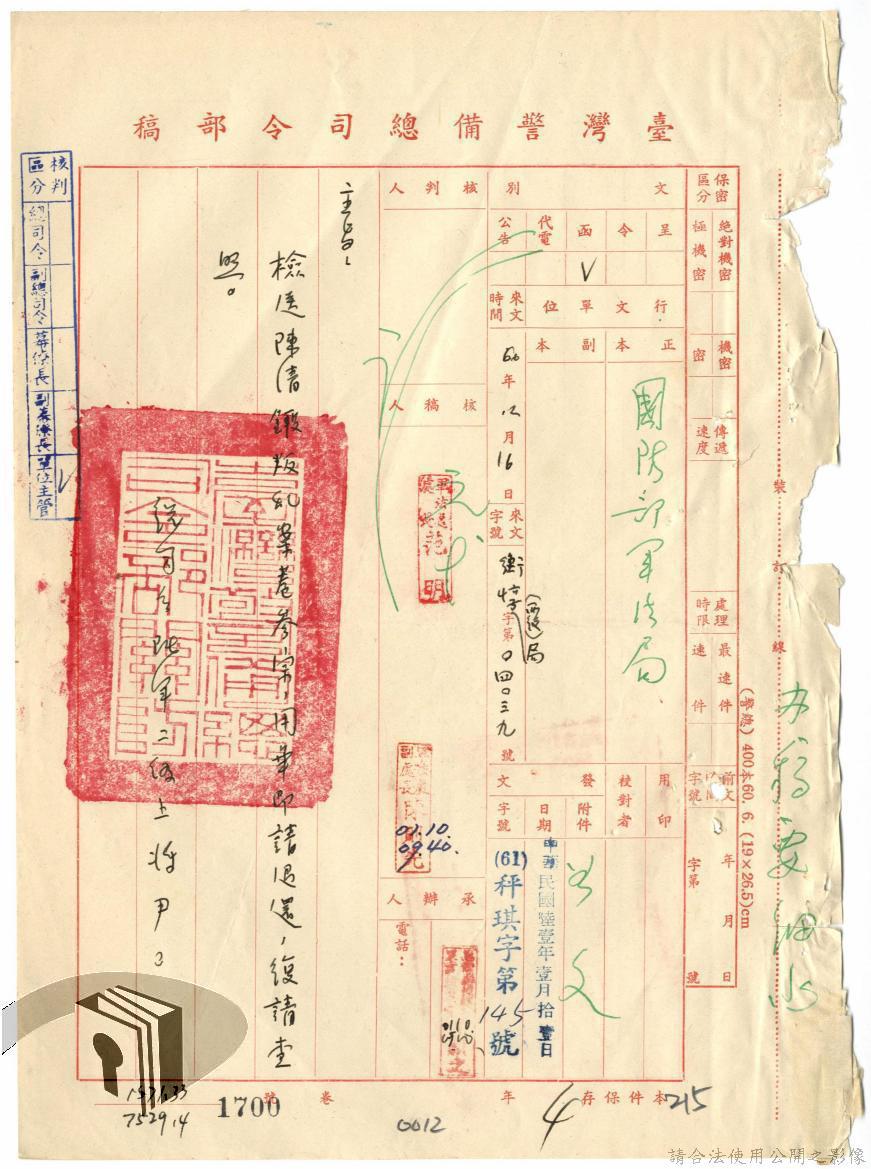 臺灣警備總司令部稿
保密區分
絕對機密
極機密
機密
密
傳遞速度
處理時限
最速件
速件
前文
字號
年月日
字第號
文別
呈
令
函
代電
公告
V
行文單位
正本
副本
國防部軍法局
來文時間
60年12月16日
來文字號
字第0四0三九號
局
用印
校對者
發文
附件
日期
字號
如文
中華民國陸壹年壹月拾壹日
(61)秤琪字第145號
核判人
核稿人
01.10.
0940.
承辦人
電話：
主旨：
檢送陳清鍛叛亂案卷參宗，用畢即請退還，復請查
照。
總司令陸軍二級上將尹
核判區分
總司令
副總司令
幕僚長
副幕僚長
單位主管
裝訂線
(警總) 400本60. 6. (19×26.5)cm
1571.33
7529.4
1700
卷號
年
本件保存
4
215
0012
請合法使用公開之影像